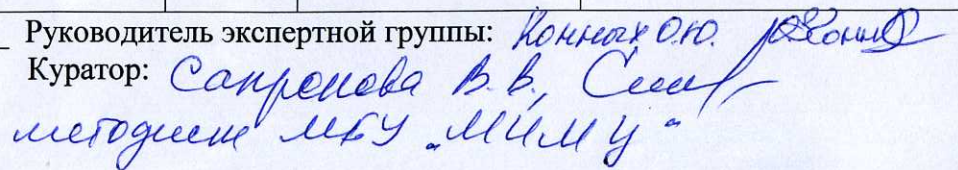 Руководитель экспертной группы: Конных О.Ю.
Куратор: Сапронова В.В.,
методист МБУ „МИМЦ“